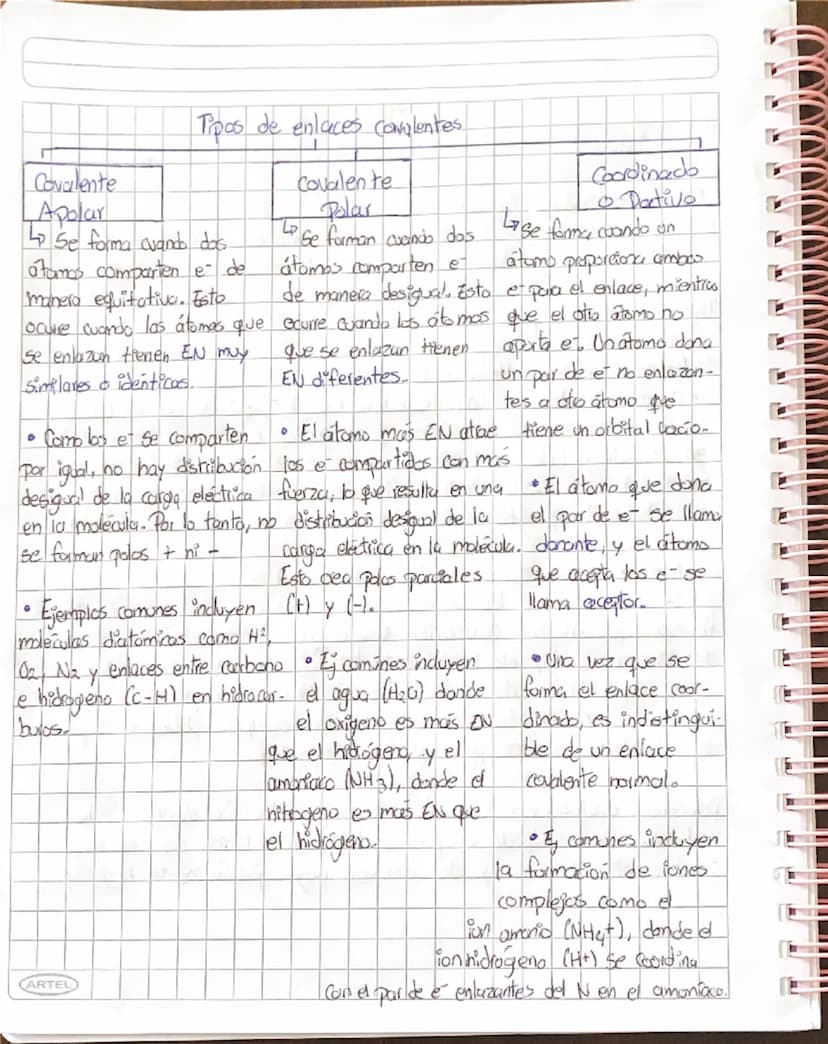 Tipos de enlaces covalentes
Covalente
Apolar
↳ Se forma cuando dos
átomos comparten e- de
manera equitativa. Esto
ocurre cuando los átomos que
se enlazan tienen EN muy
similares o idénticas.
• Como los e- se comparten
por igual, no hay distribución
desigual de la carga eléctrica
en la molécula. Por lo tanto, no
se forman polos + ni -
• Ejemplos comunes incluyen
moléculas diatómicas como H²,
O2, N2 y enlaces entre carbono
e hidrógeno (C-H) en hidrocar-
buros.
Covalente
Polar
↳ Se forman cuando dos
átomos comparten e-
de manera desigual. Esto
ocurre cuando los átomos
que se enlazan tienen
EN diferentes.
• El átomo más EN atrae
los e- compartidos con más
fuerza, lo que resulta en una
distribución desigual de la
carga eléctrica en la molécula.
Esto crea polos parciales
(+) y (-).
• Ej comunes incluyen
el agua (H2O) donde
el oxígeno es más EN
que el hidrógeno, y el
amoníaco (NH3), donde el
nitrógeno es más EN que
el hidrógeno.
Coordinado
o Dativo
↳ Se forma cuando un
átomo proporciona ambos
e- para el enlace, mientras
que el otro átomo no
aporta e-. Un átomo dona
un par de e- no enlazan-
tes a otro átomo que
tiene un orbital vacío.
• El átomo que dona
el par de e- se llama
donante, y el átomo
que acepta los e- se
llama aceptor.
• Una vez que se
forma el enlace coor-
dinado, es indistingui-
ble de un enlace
covalente normal.
• Ej comunes incluyen
la formación de iones
complejos como el
ion amonio (NH4+), donde el
ion hidrógeno (H+) se coordina
con el par de e- enlazantes del N en el amoníaco.
ARTEL